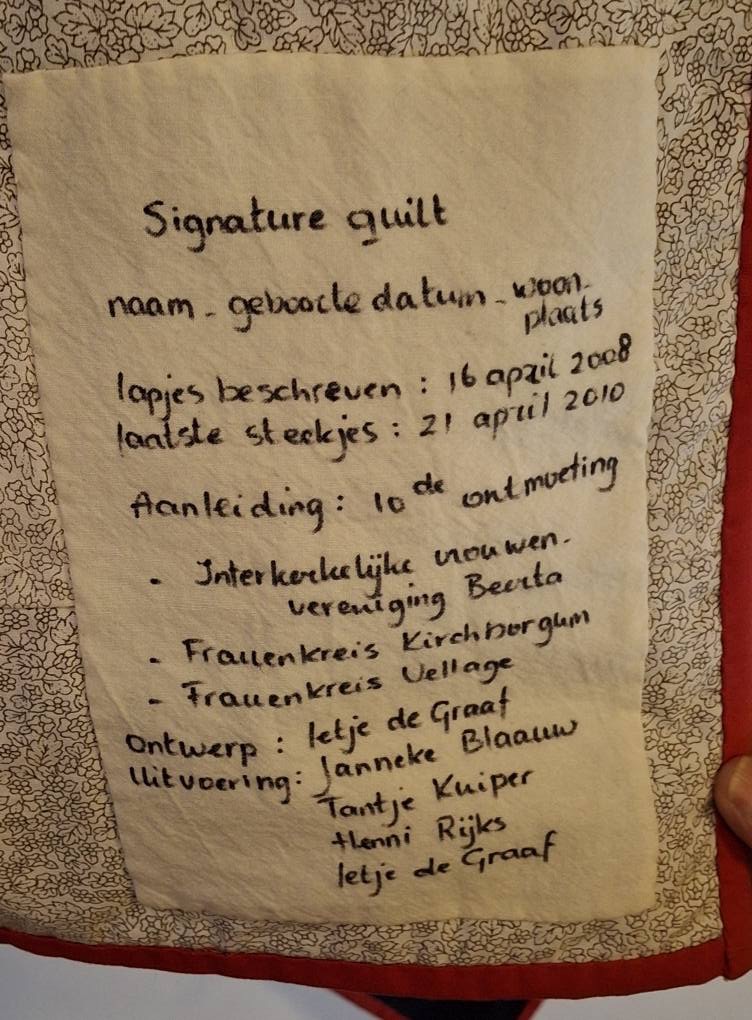 Signature quilt
naam - geboorte datum - woon-
plaats
lapjes beschreven : 16 april 2008
laatste steekjes : 21 april 2010
Aanleiding : 10de ontmoeting
- Interkerkelijke vrouwen-
vereniging Beerta
- Frauenkreis Kirchborgum
- Frauenkreis Vellage
Ontwerp : Ietje de Graaf
Uitvoering : Janneke Blaauw
Tantje Kuiper
Henni Rijks
Ietje de Graaf